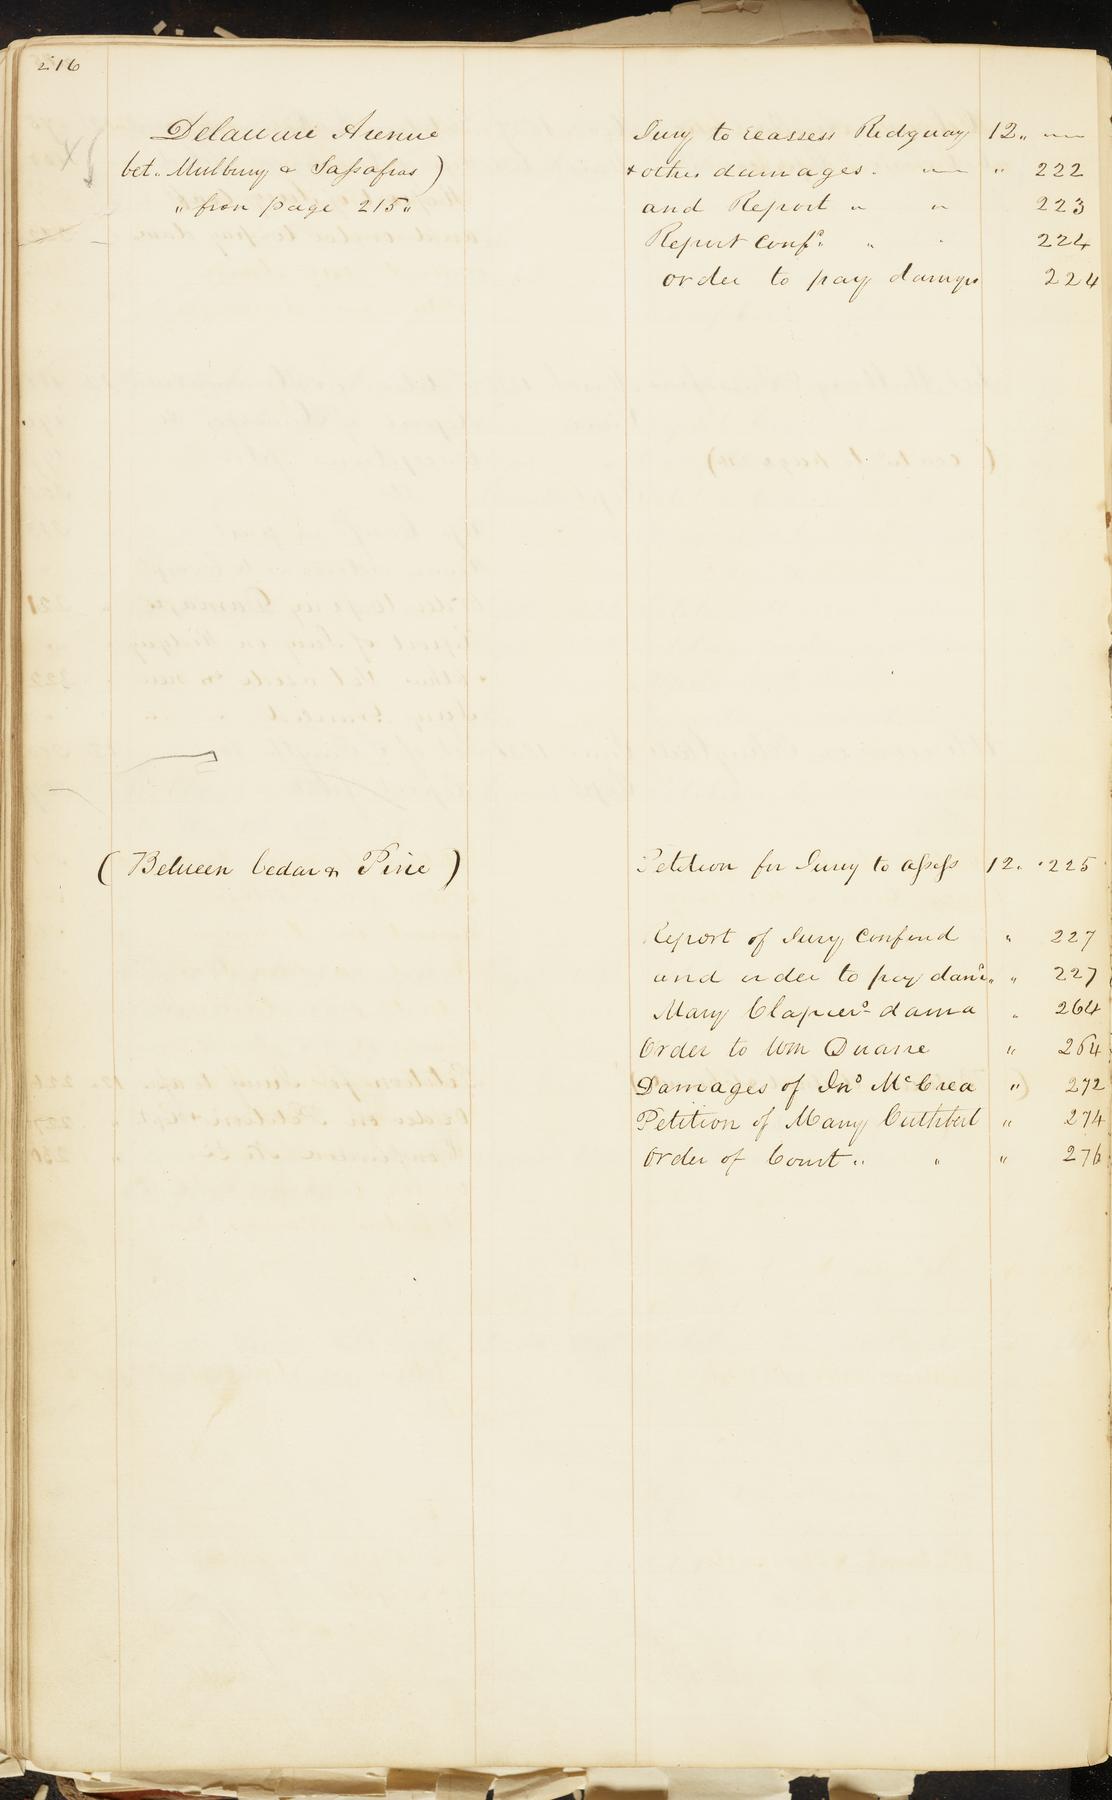 216
Delaware Avenue
bet. Mulbury & Saſsafras )
" from page 215 "
Jury to reassess Ridgway 12 "
+ other damages. " " 222
and Report " " 223
Report Conf.d " 224
order to pay damages 224
( Between Cedar & Pine )
Petition for Jury to aſseſs 12. 225
Report of Jury Confirmd " 227
and order to pay dams. " 227
Mary Clapiers dama " 264
Order to Wm Duane " 264
Damages of Jno McCrea " 272
Petition of Mary Cuthbert " 274
Order of Court " " " 276